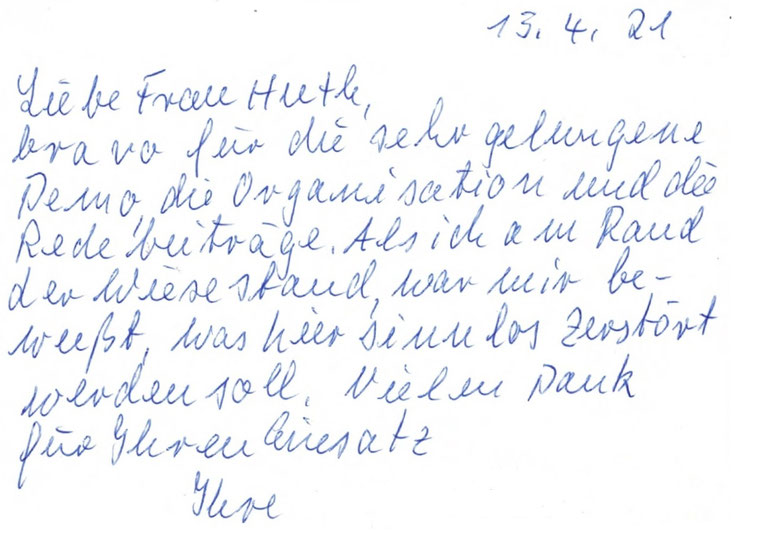 13. 4. 21
Liebe Frau Huth,
bravo für die sehr gelungene
Demo, die Organisation und die
Redebeiträge. Als ich am Rand
der Wiese stand, war mir be-
wußt, was hier sinnlos zerstört
werden soll. Vielen Dank
für Ihren Einsatz
Ihre